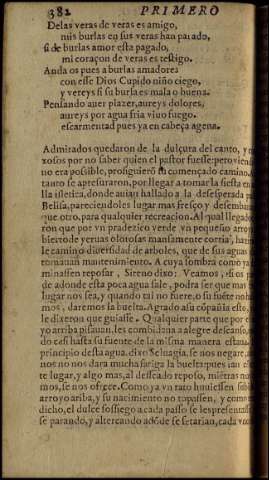 382 PRIMERO
Delas veras de veras es amigo,
mis burlas en sus veras han parado,
si de burlas amor esta pagado,
mi coraçon de veras es testigo.
Anda os pues a burlas amadores
con esse Dios Cupido niño ciego,
y vereys si su burla es mala o buena.
Pensando auer plazer, aureys dolores,
aureys por agua fria viuo fuego.
escarmentad pues ya en cabeça agena.
Admirados quedaron de la dulçura del canto, y
xosos por no saber quien el pastor fuesse: pero viendo
no era possible, prosiguierõ su començado camino.
tanto se apresuraron, por llegar a tomar la siesta en
lla isleta, donde auian hallado a la desesperada p
Belisa, pareciendoles lugar mas fresco, y desembar
que otro, para qualquier recreacion. Al qual llegado
ron que por vn pradezico verde vn pequeño arroy
bierto de yeruas olorosas mansamente corria, hazie
le camino diuersidad de arboles, que de sus aguas
tomauan mantenimiento. A cuya sombra como ya
minassen reposar, Sireno dixo: Veamos, si os p
de adonde esta poca agua sale, podra ser que mas
lugar nos sea, y quando tal no fuere, o su fuẽte no ha
mos, daremos la buelta. Agrado a su cõpañia este,
le dixeron que guiasse. Qualquier parte que por e
yo arriba pisauan, les combidana a alegre descanso,
do casi hasta su fuente de la misma manera estaua
principio desta agua, dixo Seluagia, se nos negare, a
nos no nos dara mucha fatiga la buelta: pues tan
te lugar, y algo mas, al desseado reposo, miẽtras no
mos, se nos ofrece. Como ya vn rato huuiessen subi
arroyo arriba, y su nacimiento no topassen, y como
dicho, el dulce sossiego a cada passo se les presentass
se parando, y altercando adõde se sentarian, cada vno